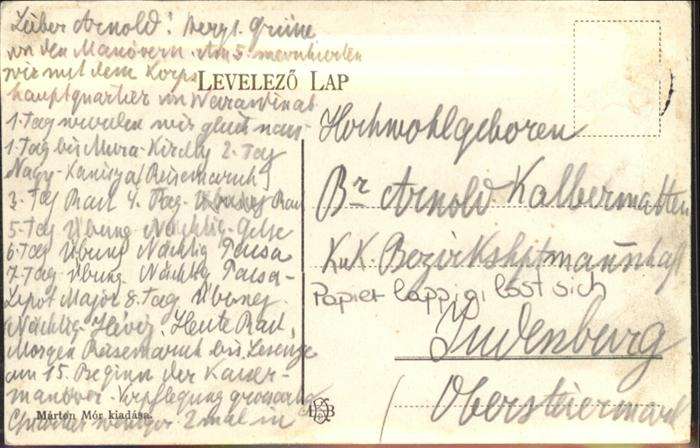 Lieber Arnold! Herzl. Grüsse
von den Manövern. Am 5. marschierten
wir mit dem Korps
LEVELEZŐ LAP
hauptquartier von
1. Tag wurden wir
1. Tag bis Mura-Király 2. Tag
Nagy-Kanizsa Reisemarsch
3. Tag Rast 4. Tag Rast
5. Tag Übung Nächtig. Gelse
6. Tag Übung Nächtig Pacsa
7. Tag Übung Nächtig Pacsa-
Lipót Major 8. Tag Übung
Nächtig. Hévíz. Heute Rast,
Morgen Reisemarsch bis
am 15. Beginn der Kaiser-
manöver. Verpflegung grossartig
weniger. 2 mal in
Márton Mór kiadása.
Hochwohlgeboren
Br Arnold Kalbermatten
K.u.K. Bezirkshptmannschaft
Papier lappig, löst sich
Judenburg
Obersteiermark